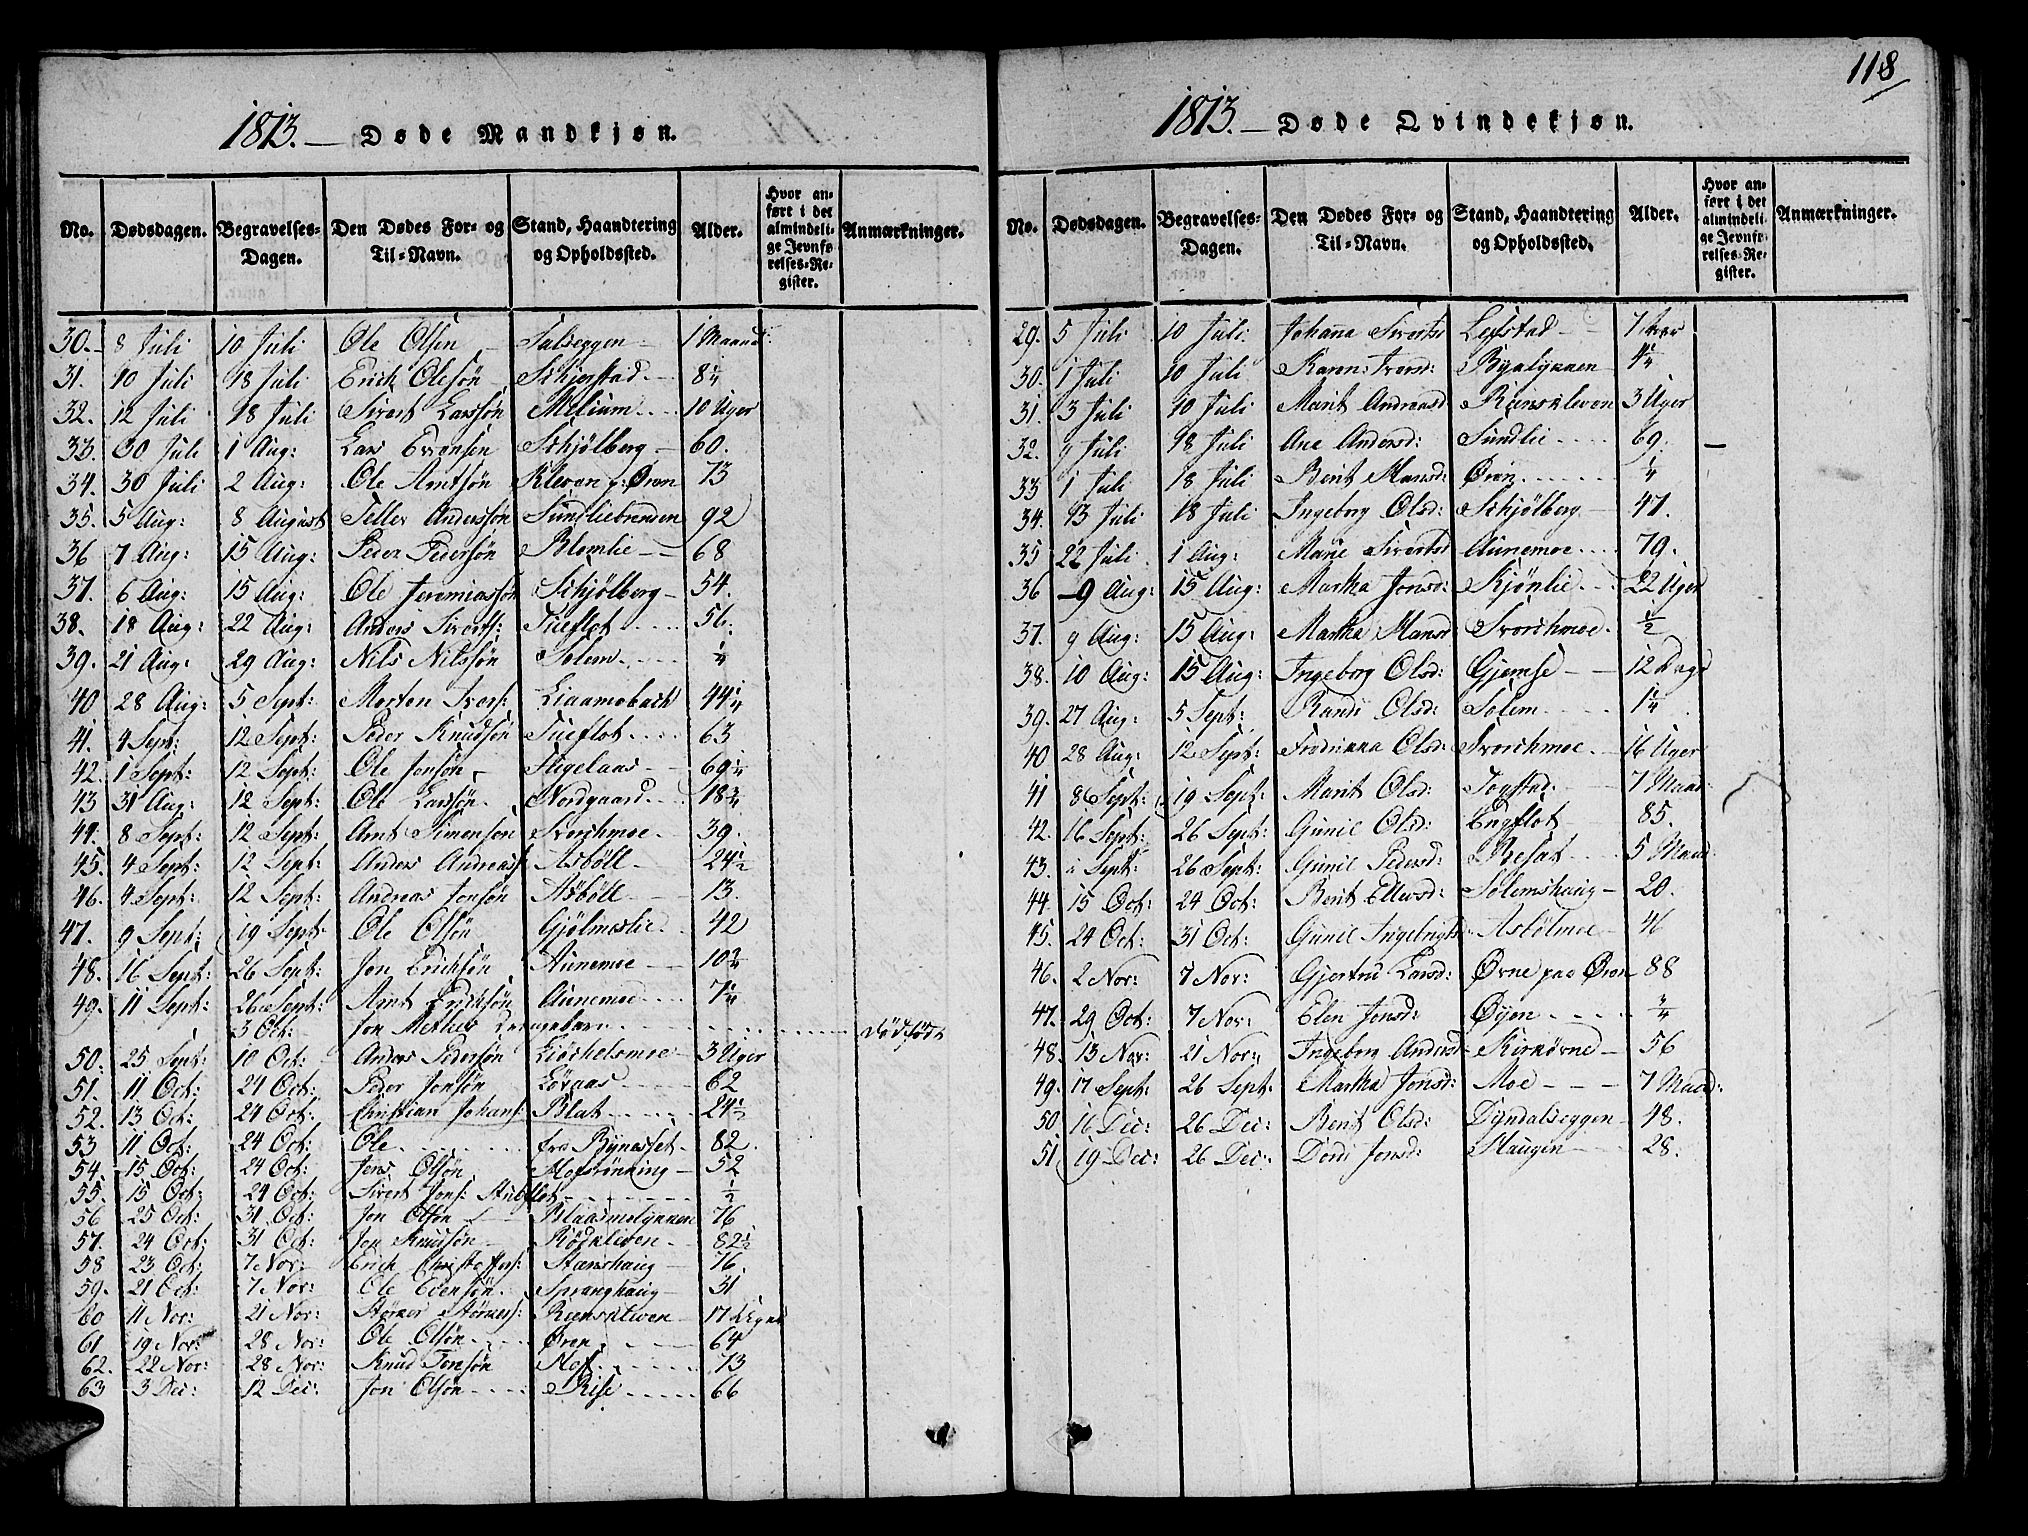 118
1813. — Døde Mandkjøn.
No. Dødsdagen. Begravelses-Dagen. Den Dødes For- og Til-Navn. Stand, Haandtering og Opholdssted. Alder. Hvor anført i det almindelige Jevnførelses-Register. Anmærkninger.
30. 8 Juli 10 Juli Ole Olsen Salseggen 1 Maand:
31. 10 Juli 18 Juli Erich Olesøn Schjerstad 8 1/4
32. 12 Juli 18 Juli Sivert Larssøn Melium 10 Uger
33. 30 Juli 1 Aug: Lars Evensen Schjølberg 60.
34. 30 Juli 2 Aug: Ole Arntsøn Kleven p: Øren 73
35. 5 Aug: 8 August Seller Anderssøn Sundliebrenden 92
36 7 Aug: 15 Aug: Peder Pedersøn Blomlie 68
37. 6 Aug: 15 Aug: Ole Jeremiassøn Schjølberg 54.
38. 18 Aug: 22 Aug: Anders Siverts: Tueflot 56.
39. 21 Aug: 29 Aug: Nils Nilssøn Solem 1/4
40 28 Aug: 5 Sept: Morten Ivers: Liaamobach 44 1/4
41. 4 Sept: 12 Sept: Peder Knudsøn Tueflot 63
42. 1 Sept: 12 Sept: Ole Jonsøn Fugelaas 69 1/4
43 31 Aug: 12 Sept: Ole Larssøn Nordgaard 18 3/4
44. 8 Sept: 12 Sept: Arnt Simensøn Svorchmoe 39.
45. 4 Sept: 12 Sept: Anders Andreass: Asbøll 24 1/2
46. 4 Sept: 12 Sept: Andreas Jonsøn Asbøll 13.
47. 9 Sept: 19 Sept: Ole Olsøn Gjølmeslie 42
48. 16 Sept: 26 Sept: Jon Ericksøn Aunemoe 10 3/4
49. 11 Sept: 26 Sept: Arnt Ericksøn Aunemoe 7 1/4
3 Oct: Jon Mekkes Drengebarn dødfødt
50. 25 Sept: 10 Oct: Anders Pedersøn Liøchelsmoe 3 Uger
51. 11 Oct: 24 Oct: Peder Jonsøn Løraas 62
52. 13 Oct: 24 Oct: Christian Johans: Blat 24 1/2
53 11 Oct: 24 Oct: Ole fra Bynesset 82.
54. 15 Oct: 24 Oct: Jens Olsøn Hofstinning 52
55. 15 Oct: 24 Oct: Sivert Jons: Stubflot 1/2
56 25 Oct: 31 Oct: Jon Olsøn Blaasmolynnen 76
57. 24 Oct: 31 Oct: Jon Knudsøn Rødkleven 82 1/2
58 23 Oct: 7 Nov: Erich Christoffers: Stenshaug 76.
59. 21 Oct: 7 Nov: Ole Evensøn Spranghaug 31
60 11 Nov: 21 Nov: Størker Størkers: Rænskleven 17 Dage
61 19 Nov: 28 Nov: Ole Olsøn Øren 64
62. 22 Nov: 28 Nov: Knud Jonsøn Hof 73
63 3 Dec: 12 Dec: Jon Olsøn Rise 66
1813. — Døde Qvindekjøn.
No. Dødsdagen. Begravelses-Dagen. Den Dødes For- og Til-Navn. Stand, Haandtering og Opholdssted. Alder. Hvor anført i det almindelige Jevnførelses-Register. Anmærkninger.
29. 5 Juli 10 Juli Johana Siverts: Lefstad 7
30. 1 Juli 10 Juli Karen Iversd: Byalynnen 4 1/4
31. 3 Juli 10 Juli Marit Andreasd Rænskleven 3 Uger
32. 9 Juli 18 Juli Ane Andersd: Sundlie 69.
33 1 Juli 18 Juli Berit Hansd: Øren 1/4
34. 13 Juli 18 Juli Ingeborg Olsd: Schjølberg 47.
35 22 Juli 1 Aug: Marie Sivertsd Aunemoe 79.
36 9 Aug: 15 Aug: Martha Jonsd: Kjønlie 22 Uger
37. 9 Aug: 15 Aug: Martha Hansd Svorchmoe 1/2
38. 10 Aug: 15 Aug: Ingeborg Olsd: Gjemse 12 Dage
39. 27 Aug: 5 Sept: Randi Olsd: Solem 1 1/4
40 28 Aug: 12 Sept: Fredrinna Olsd: Svorchmoe 16 Uger
41 8 Sept: 19 Sept: Marit Olsd: Jogstad 7 Maad:
42. 16 Sept: 26 Sept: Gunil Olsd: Engflot 85.
43. Sept: 26 Sept: Gunil Pedersd: Resat 5 Maad:
44. 15 Oct: 24 Oct: Berit Ellevsd: Solemshaug 20.
45. 24 Oct: 31 Oct: Gunil Ingebrigts: Asbølmoe 46
46. 2 Nov: 7 Nov: Gjertrud Larsd: Ørne paa Øren 88
47. 29 Oct: 7 Nov: Elen Jonsd: Øyen 3/4
48. 13 Nov: 21 Nov: Ingeborg Andersd Kirkørne 56
49. 17 Sept: 26 Sept: Martha Jonsd: Moe 7 Maad:
50 16 Dec: 26 Dec: Berit Olsd: Dyndalseggen 48.
51 19 Dec: 26 Dec: Dordi Jonsd: Haugen 28.